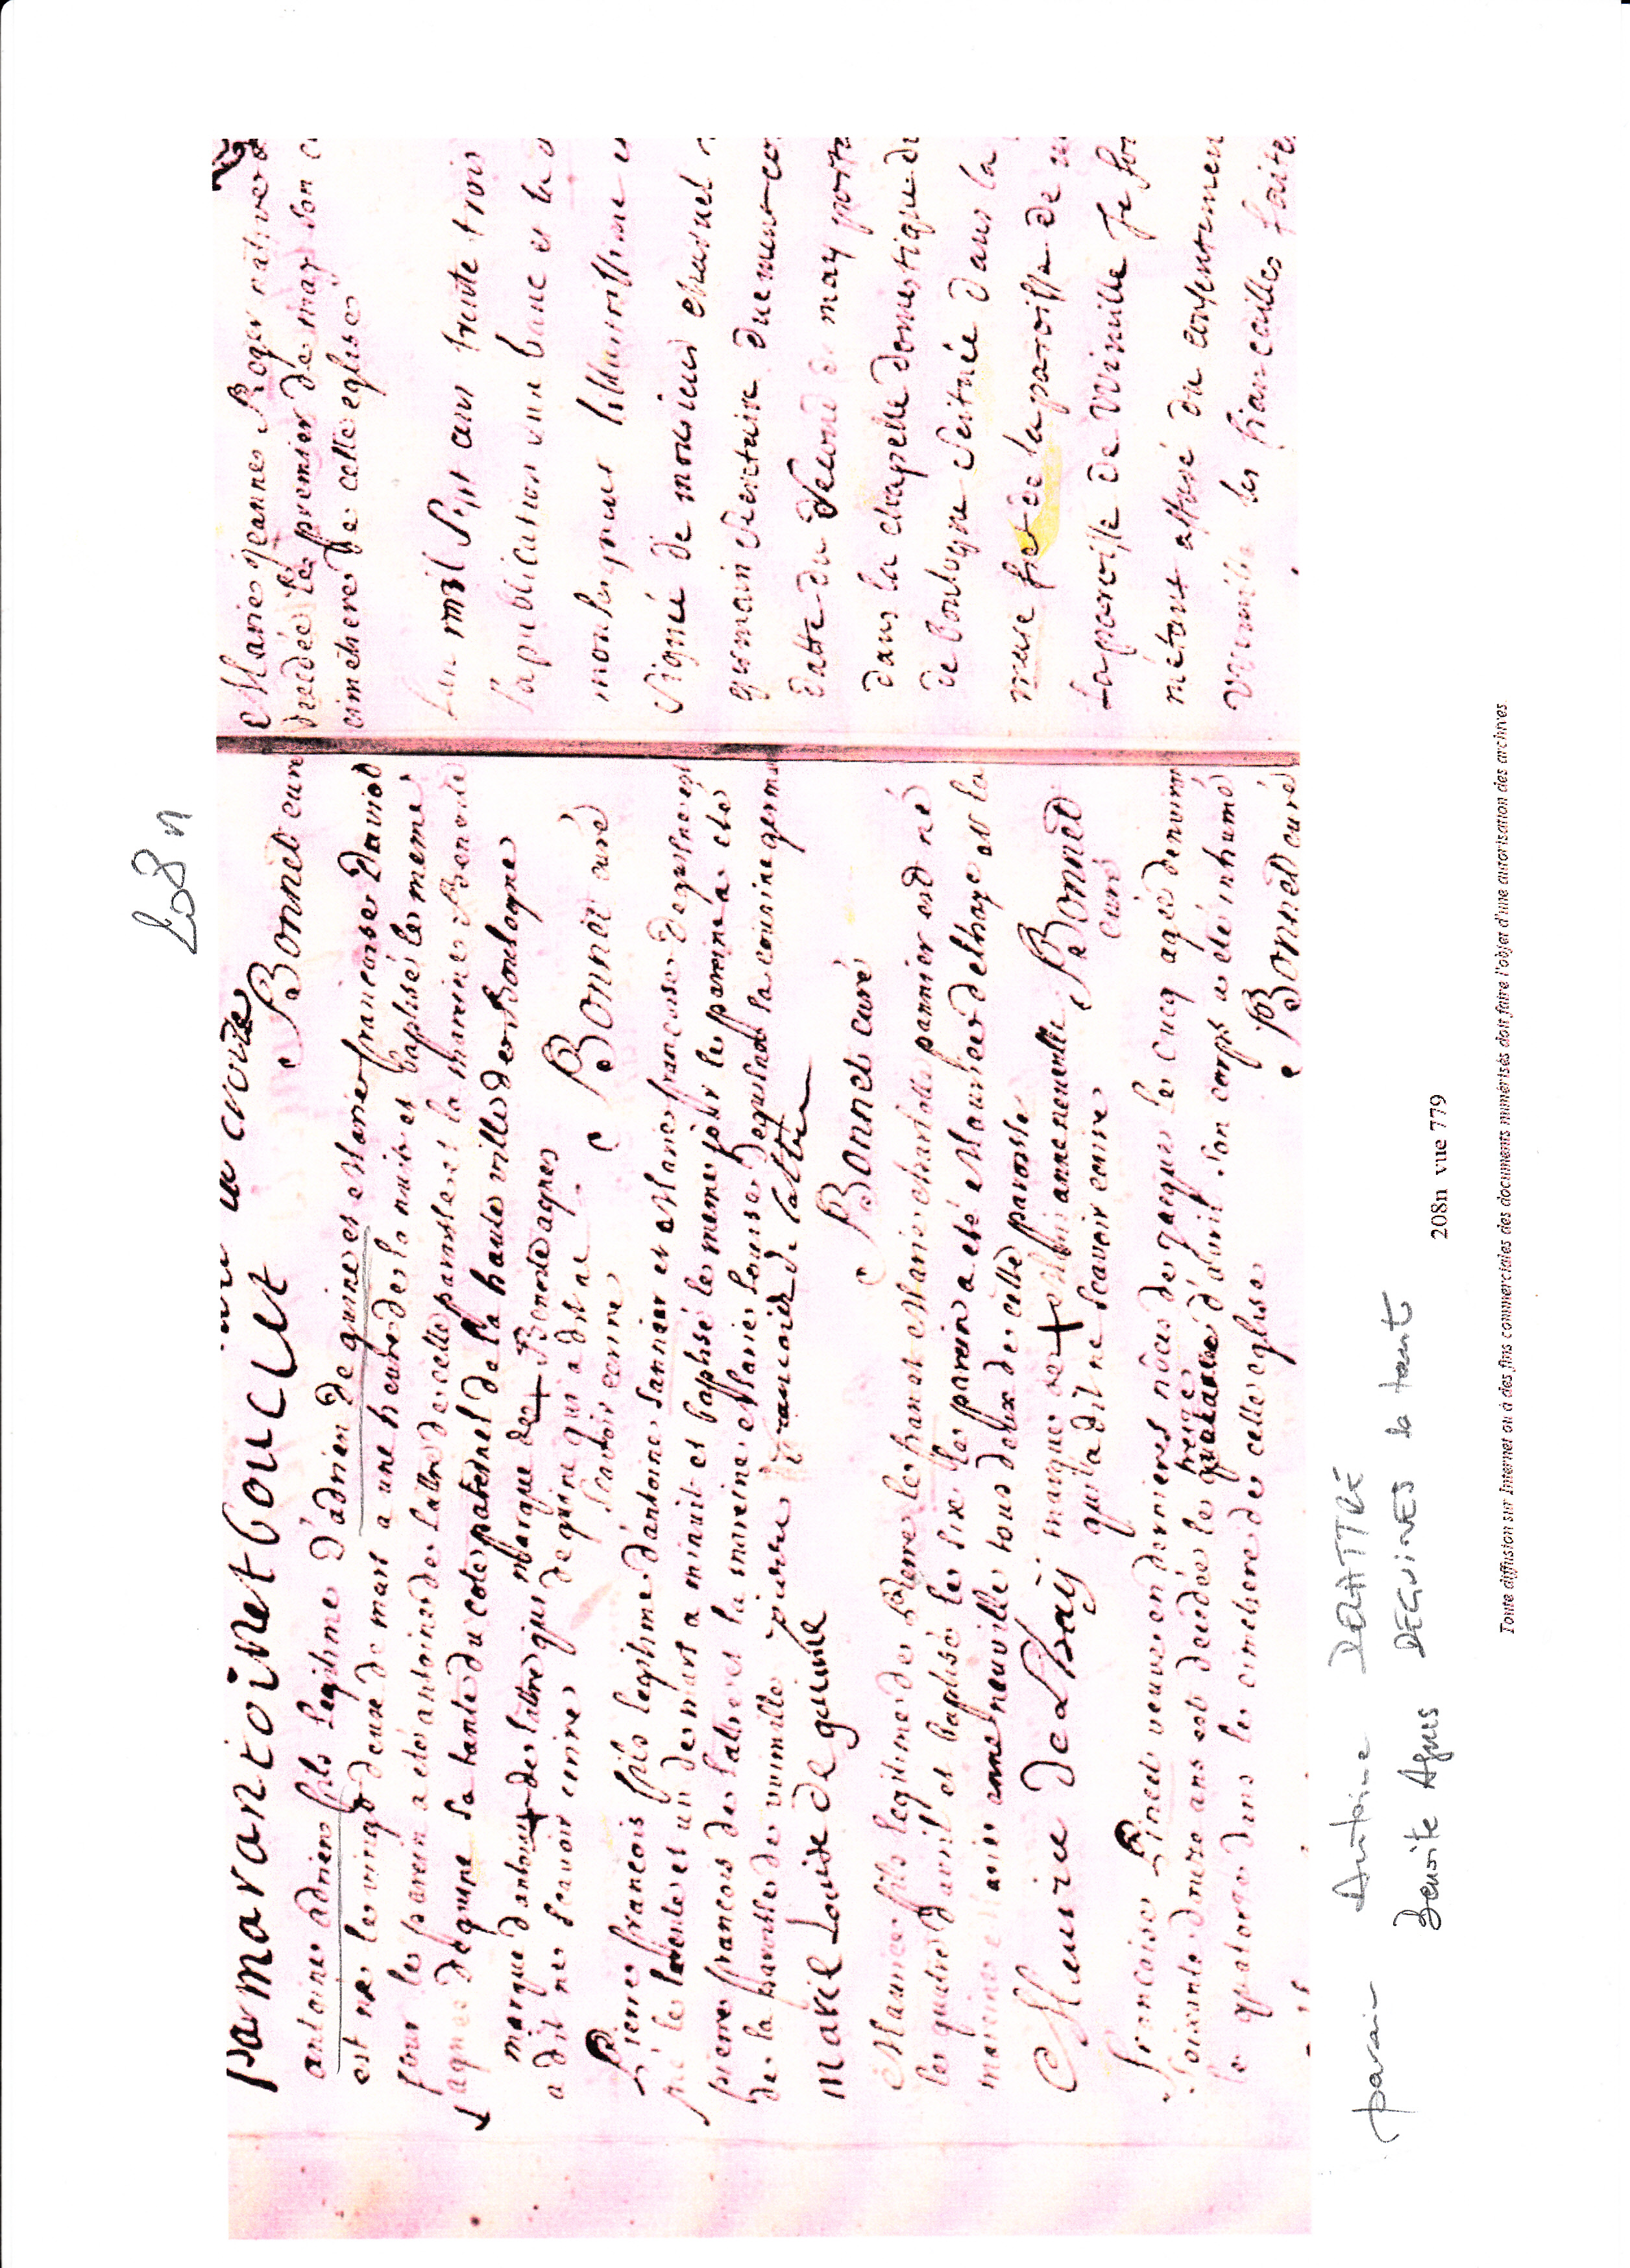 208n
la croix
pamarantoinetboucLet Bonnet curé
antoine adrien fils Legitime d'adrien de guine et Marie francoise David
est né le vingt deux de mars a une heure de la nuit et baptisé le meme
pour le parein a eté antoine de Lattre de cette paroisse et la mareine Benoite
agnes deguine sa tante du coté paternel de la haute ville de Boulogne
marque d'antoine + de lattre qui marque de + Benoite agnes
a dit ne scavoir ecrire deguine qui a dit ne
scavoir ecrire Bonnet curé
Pierre francois fils legitime d'antoine Sannier et Marie francoise deguine est
né le trente et un de mars a minuit et baptisé le meme jour le parein a eté
pierre francois de lattre et la mareine Marie Louise Deguine sa cousine germa
de la paroisse de wimille pierre francois de lattre
Marie Louise de guine Bonnet curé
Maurice fils legitime de Pierre le franc et Marie charlotte pannier est né
le quatre d'avril et baptisé le six le parein a eté Maurice delhaye et la
mareine anne neuville tous deux de cette paroisse
Meurice delhaij marque de + anne neuville Bonnet
qui a dit ne scavoir ecrire curé
francoise Pincet veuve en dernieres nôces de jacques le Cucq agée denviron
soixante douze ans est decedée le treize d'avril son corps a eté inhumé
le quatorze dans le cimetiere de cette eglise
Bonnet curé
Marie jeanne Roger
decedée le premier de may son c
cimetiere de cette eglise
Lan mil sept cens trente trois
la publication d'un banc et la d
monseigneur lillustrissime
Signé de monsieur
germain secretaire duement co
datte du second de may porta
dans la chapelle domestique de
de boulogne scituée dans la
de la paroisse de
la paroisse de Wimille
métant assuré du consentemen
Wimille les fiancailles faite
parain Antoine DELATTRE
Benoite Agnes DEGUINES sa tante
208n vue 779
Toute diffusion sur Internet ou à des fins commerciales des documents numérisés doit faire l'objet d'une autorisation des archives